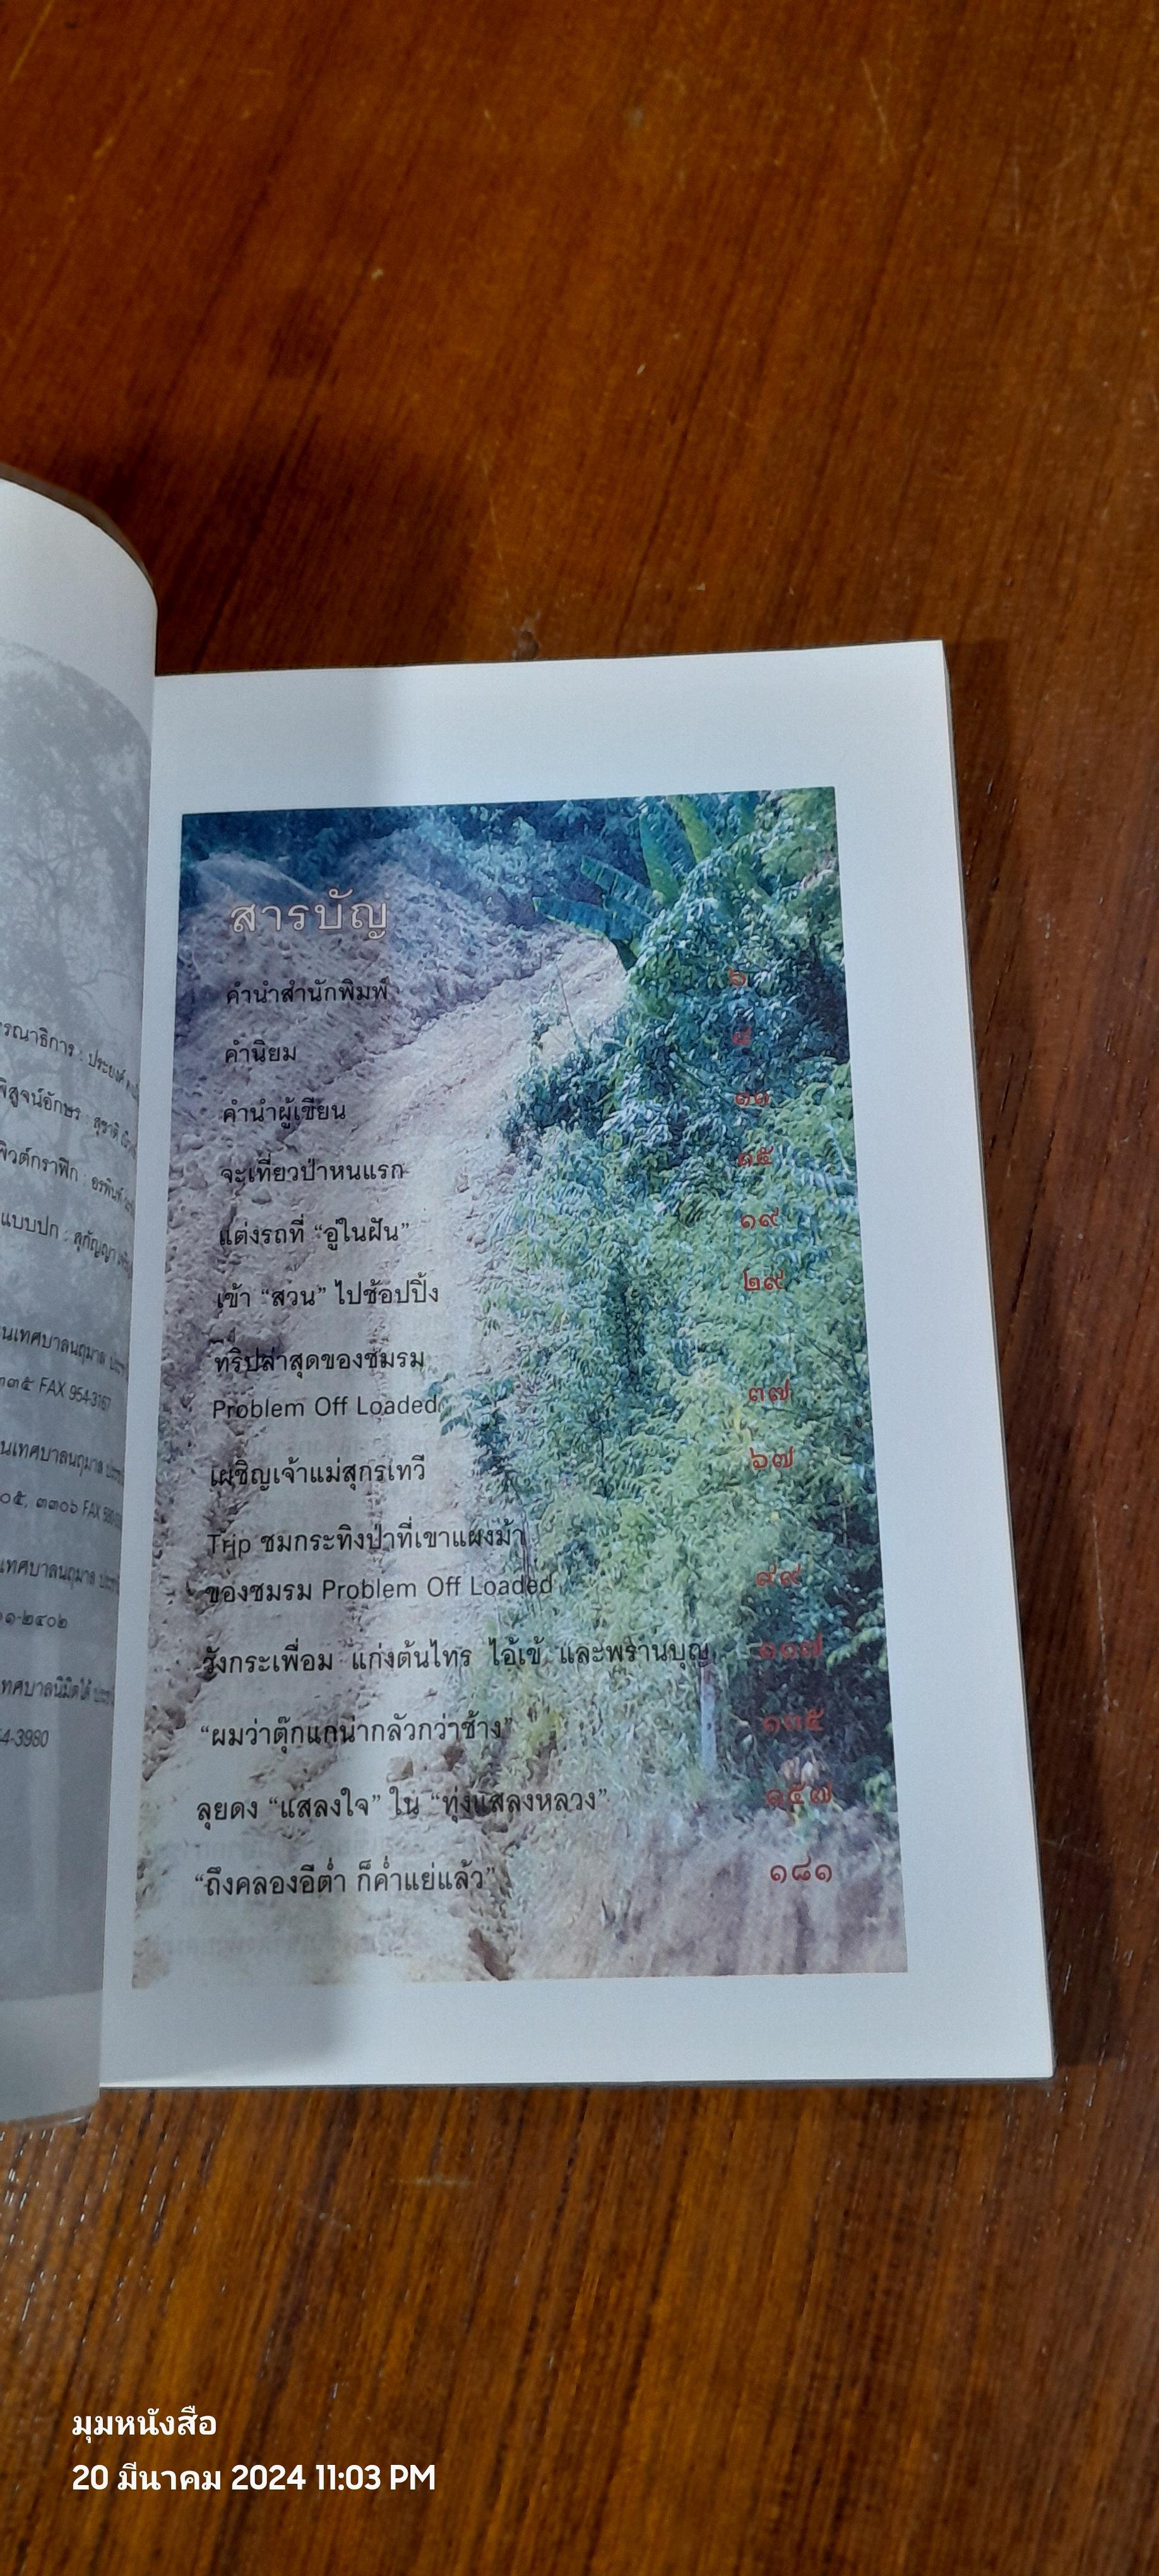 รรณาธิการ : ประยงค์
พิสูจน์อักษร : สุชาติ
พิวต์กราฟิก : อรพินท์
แบบปก : สุกัญญา
นเทศบาลนฤมาล
๓๓๕ FAX 954-3167
นเทศบาลนฤมาล
๐๕, ๓๓๐๖ FAX
เทศบาลนฤมาล
๑๑-๒๔๐๒
ทศบาลนิมิตใต้
54-3980
สารบัญ
คำนำสำนักพิมพ์ ๖
คำนิยม ๘
คำนำผู้เขียน ๑๑
จะเที่ยวป่าหนแรก ๑๕
แต่งรถที่ “อู่ในฝัน” ๑๙
เข้า “สวน” ไปช้อปปิ้ง ๒๙
ทริปล่าสุดของชมรม
Problem Off Loaded ๓๗
เผชิญเจ้าแม่สุกรเทวี ๖๗
Trip ชมกระทิงป่าที่เขาแผงม้า
ของชมรม Problem Off Loaded ๙๙
วังกระเพื่อม แก่งต้นไทร ไอ้เข้ และพรานบุญ ๑๑๗
“ผมว่าตุ๊กแกน่ากลัวกว่าช้าง” ๑๓๕
ลุยดง “แสลงใจ” ใน “ทุ่งแสลงหลวง” ๑๕๗
“ถึงคลองอีต่ำ ก็ค่ำแย่แล้ว” ๑๘๑
มุมหนังสือ
20 มีนาคม 2024 11:03 PM